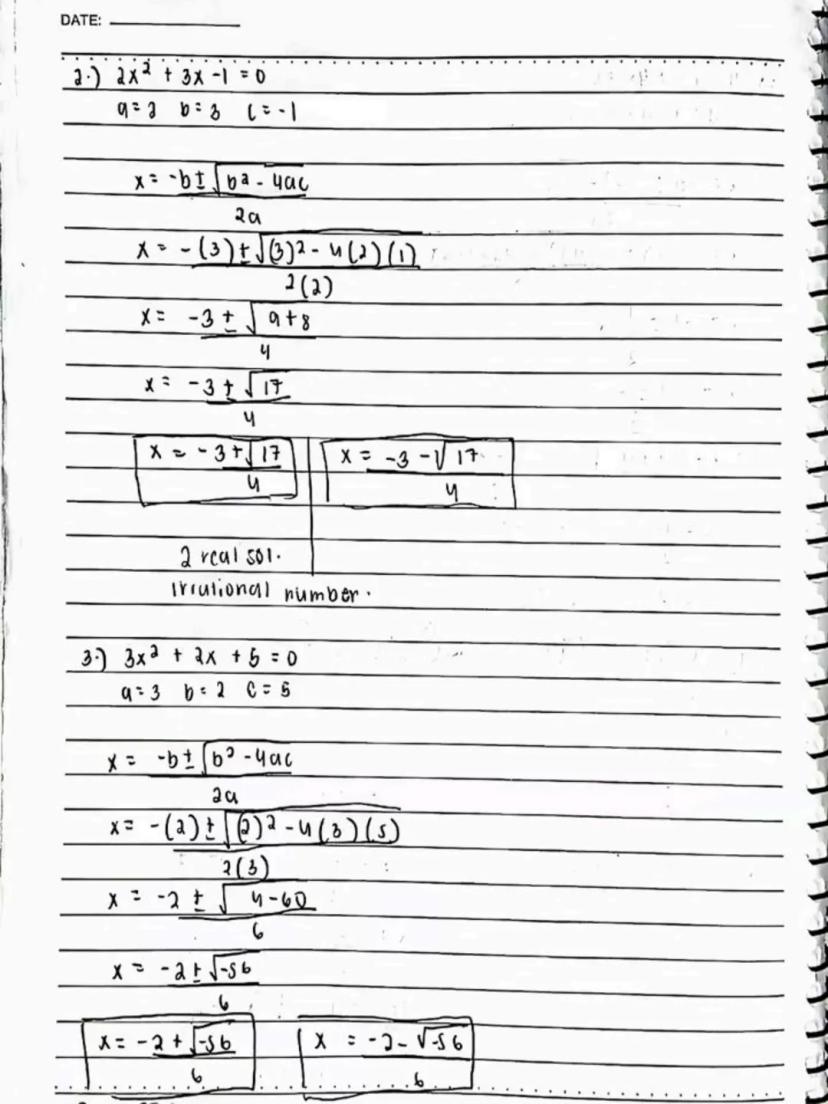 DATE:
2.) 2x² + 3x - 1 = 0
a = 2 b = 3 c = -1
x = -b ± √b² - 4ac
2a
x = -(3) ± √(3)² - 4(2)(1)
2(2)
x = -3 ± √9+8
4
x = -3 ± √17
4
x = -3 + √17 x = -3 - √17
4 4
2 real sol.
Irrational number.
3.) 3x² + 2x + 5 = 0
a = 3 b = 2 c = 5
x = -b ± √b² - 4ac
2a
x = -(2) ± √(2)² - 4(3)(5)
2(3)
x = -2 ± √4-60
6
x = -2 ± √-56
6
x = -2 + √-56 x = -2 - √-56
6 6